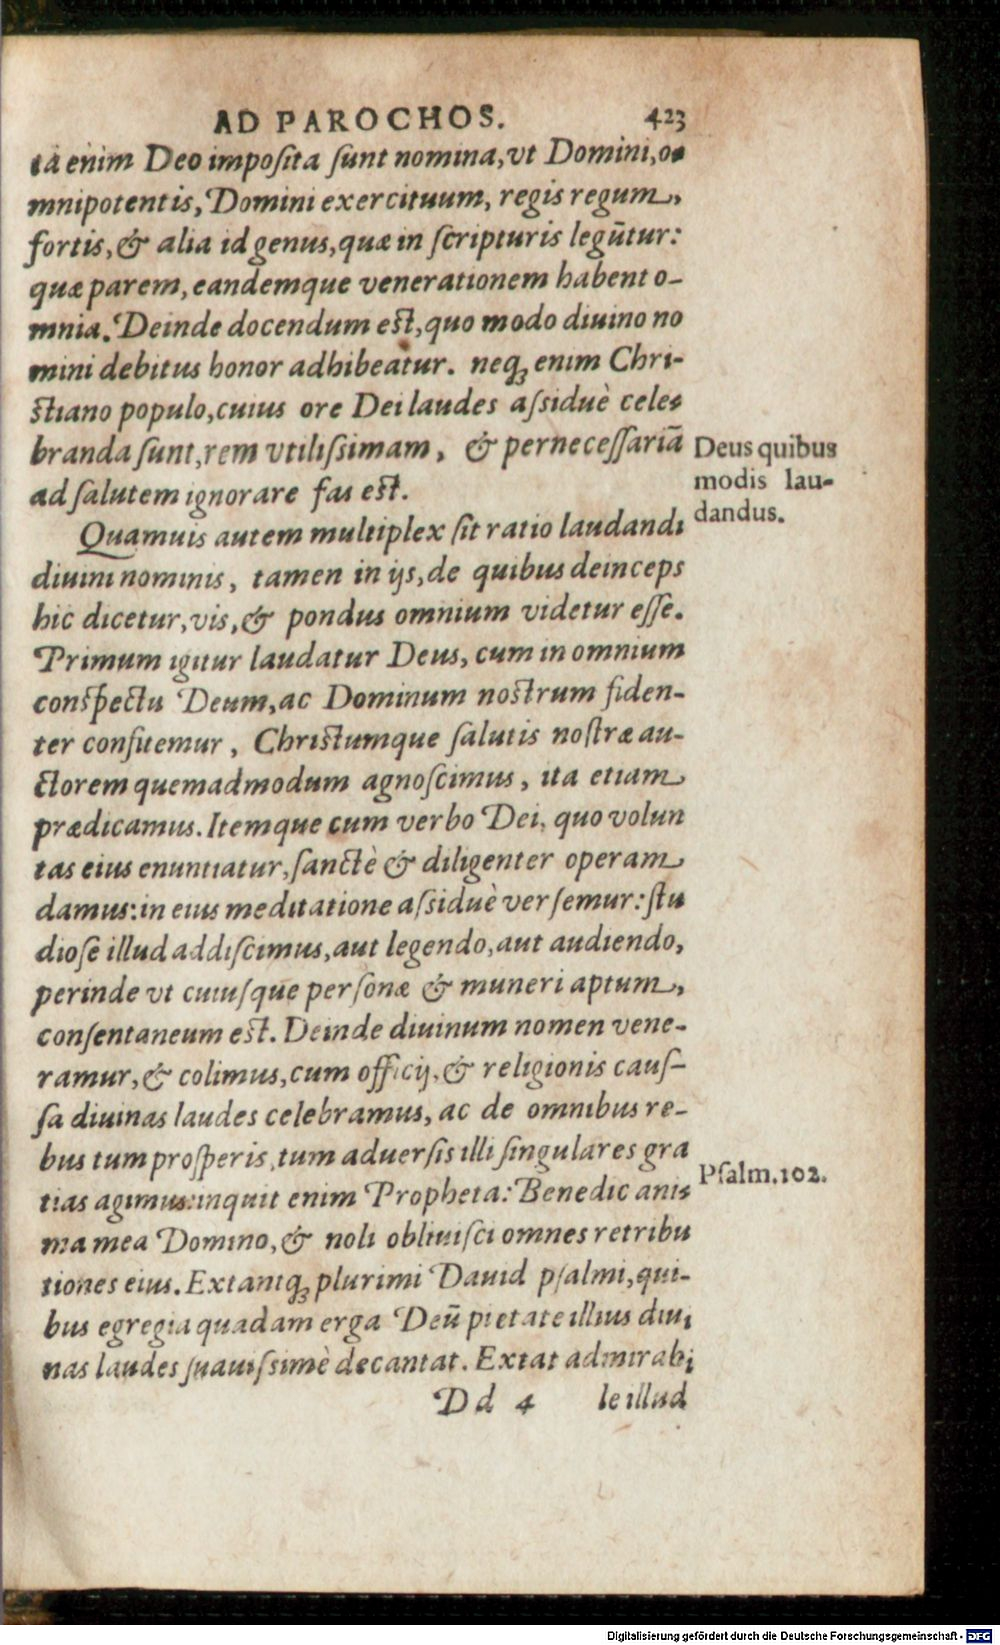 AD PAROCHOS. 423
ta enim Deo imposita sunt nomina, vt Domini, o-
mnipotentis, Domini exercituum, regis regum,
fortis, & alia id genus, quæ in scripturis legũtur:
quæ parem, eandemque venerationem habent o-
mnia. Deinde docendum est, quo modo diuino no
mini debitus honor adhibeatur. neq; enim Chri-
stiano populo, cuius ore Dei laudes assiduè cele-
branda sunt, rem vtilissimam, & pernecessariã
ad salutem ignorare fas est.
Deus quibus
modis lau-
dandus.
Quamuis autem multiplex sit ratio laudandi
diuini nominis, tamen in ijs, de quibus deinceps
hic dicetur, vis, & pondus omnium videtur esse.
Primum igitur laudatur Deus, cum in omnium
conspectu Deum, ac Dominum nostrum fiden-
ter confitemur, Christumque salutis nostræ au-
ctorem quemadmodum agnoscimus, ita etiam
prædicamus. Itemque cum verbo Dei, quo volun
tas eius enuntiatur, sanctè & diligenter operam
damus: in eius meditatione assiduè versemur: stu
diose illud addiscimus, aut legendo, aut audiendo,
perinde vt cuiusque personæ & muneri aptum,
consentaneum est. Deinde diuinum nomen vene-
ramur, & colimus, cum officij, & religionis caus-
sa diuinas laudes celebramus, ac de omnibus re-
bus tum prosperis, tum aduersis illi singulares gra
tias agimus: inquit enim Propheta: Benedic ani-
Psalm. 102.
ma mea Domino, & noli obliuisci omnes retribu
tiones eius. Extantq; plurimi Dauid psalmi, qui-
bus egregia quadam erga Deũ pietate illius diui
nas laudes suauissimè decantat. Extat admirabi
Dd 4 le illud
Digitalisierung gefördert durch die Deutsche Forschungsgemeinschaft - DFG